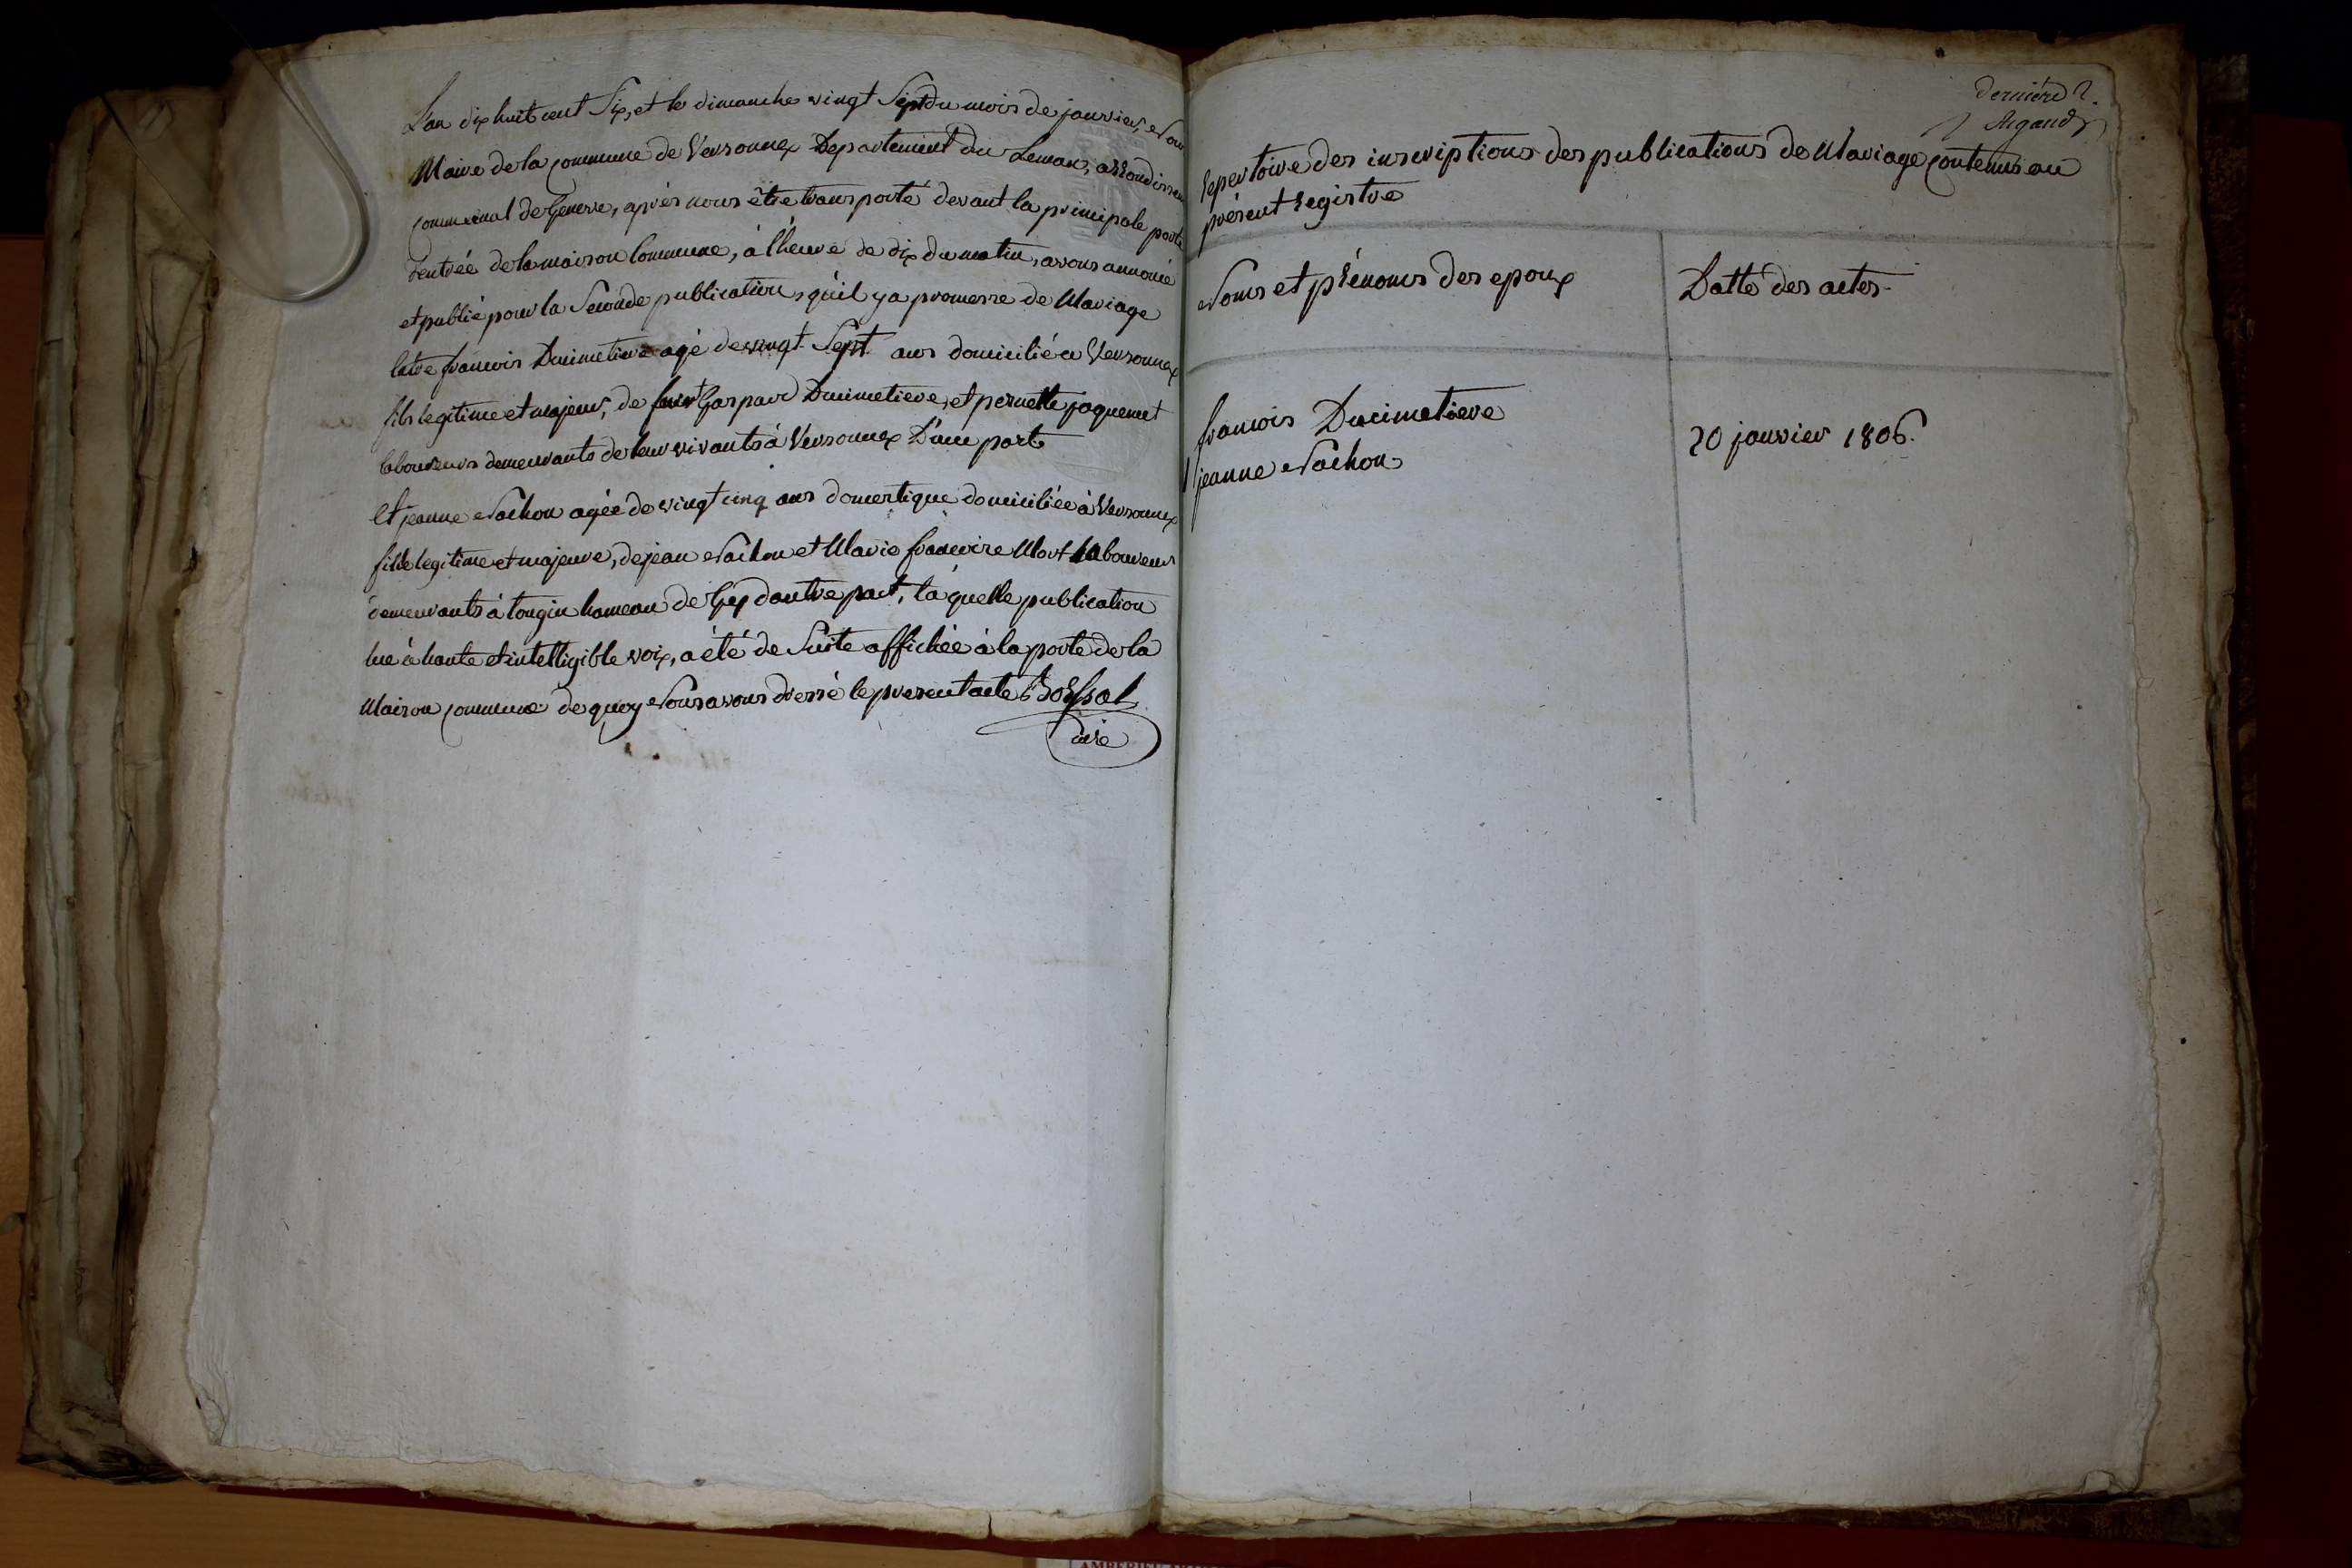 L'an dix huit cent Six, et le dimanche vingt Sept du mois de janvier, Nous
Maire de la commune de Versonnex Departement du Leman, arrondissem
communal de Geneve, après nous être transporté devant la principale porte
d'entrée de la maison Commune, à l'heure de dix du matin, avons annoncé
et publié pour la Seconde publication, qu'il y a promesse de Mariage
entre francois Ducimetiere agé de vingt Sept ans domicilié a Versonnex
fils legitime et majeur, de feux Gaspard Ducimetiere, et pernette jaquemet
laboureurs demeurants de leur vivants à Versonnex D'une part
Et jeanne Nachon agée de vingt cinq ans domestique domiciliée à Versonnex
fille legitime et majeure, de jean Nachon et Marie francoise Mort laboureurs
demeurants à tougin hameau de Gex d'autre part, la quelle publication
lue à haute et intelligible voix, a été de Suite affichée à la porte de la
Maison commune de quoy Nous avons dressé le present acte
dernière
Argand
repertoire des inscriptions des publications de Mariage contenus au
présent registre
Noms et prénoms des epoux
Datte des actes
francois Ducimetiere
jeanne Nachon
20 janvier 1806.